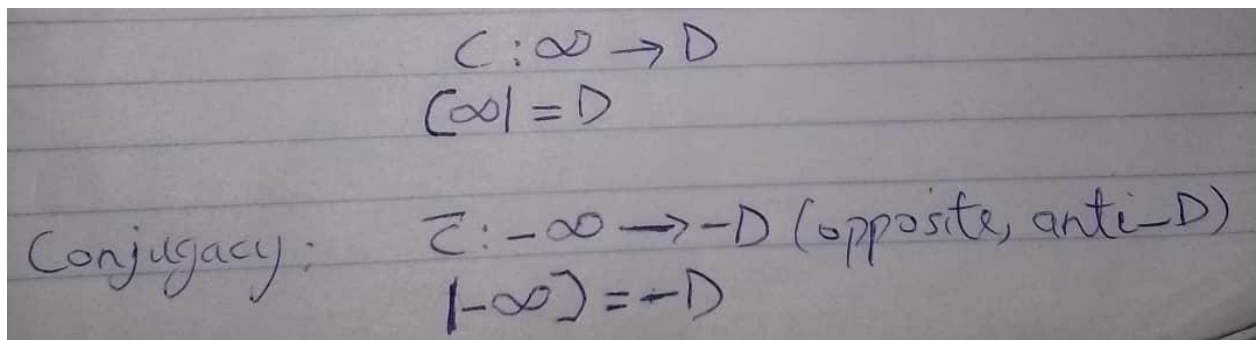 C : ∞ → D
C∞| = D
Conjugacy: C̅ : -∞ → -D (opposite, anti-D)
|-∞Ɔ = -D